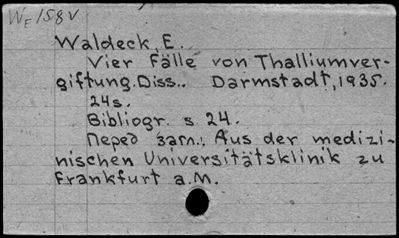 WE 158V
Waldeck, E.
Vier Fälle von Thalliumver-
giftung. Diss.. Darmstadt, 1935.
24s.
Bibliogr. s 24.
Перед загл.: Aus der medizi-
nischen Universitätsklinik zu
Frankfurt a.M.